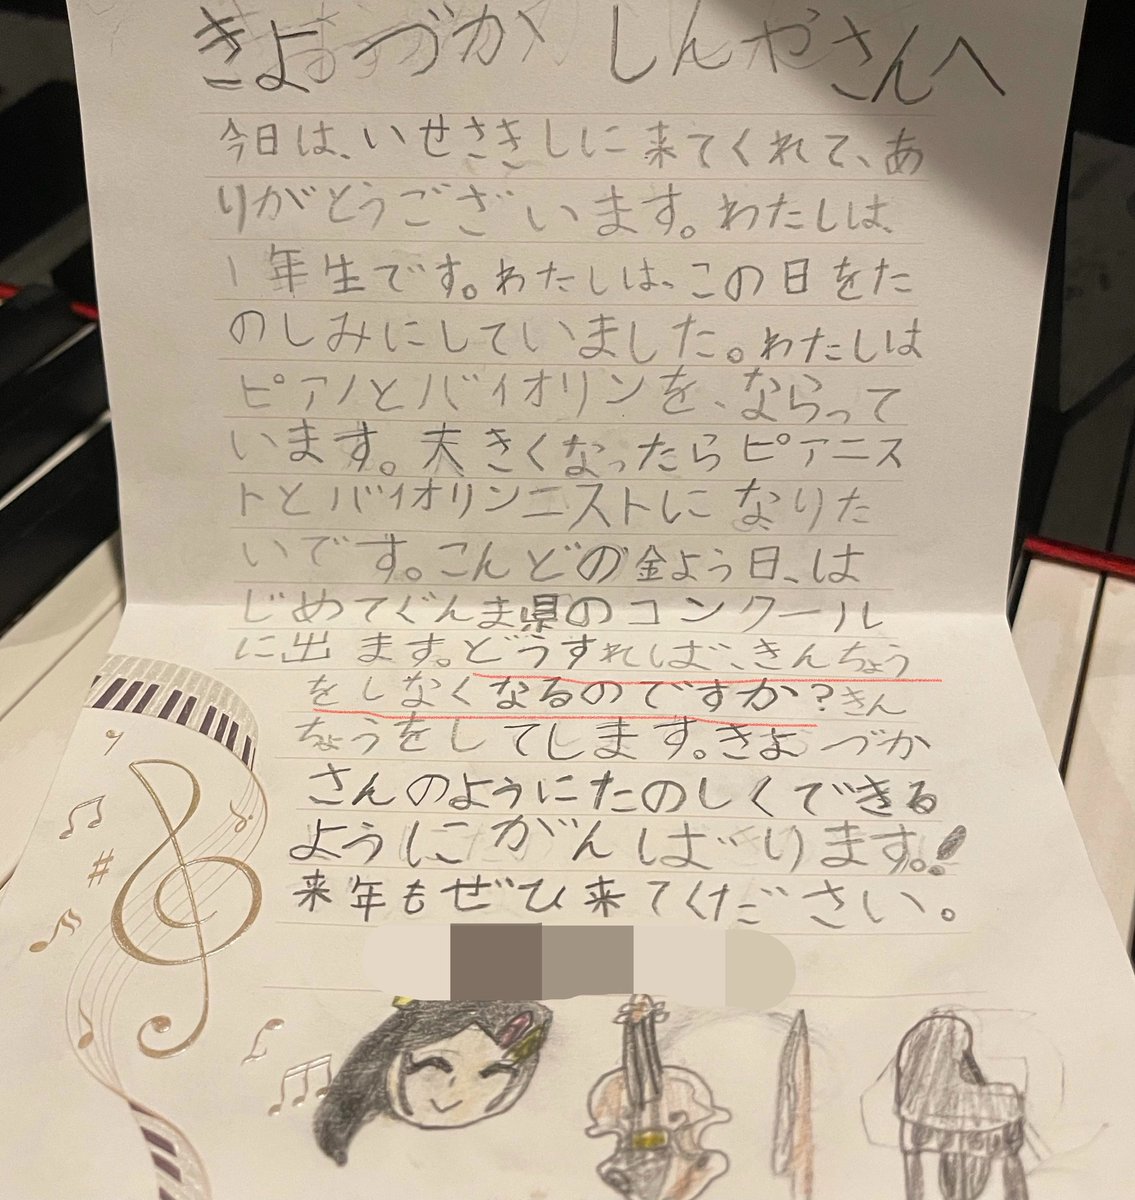 きよづか しんやさんへ
今日は、いせさきしに来てくれて、あ
りがとうございます。わたしは、
1年生です。わたしは、この日をた
のしみにしていました。わたしは
ピアノとバイオリンを、ならって
います。大きくなったらピアニス
トとバイオリンニストになりた
いです。こんどの金よう日、は
じめてぐんま県のコンクール
に出ます。どうすれば、きんちょう
をしなくなるのですか?きん
ちょうをしてします。きよづか
さんのようにたのしくできる
ようにがんばります。!
来年もぜひ来てください。